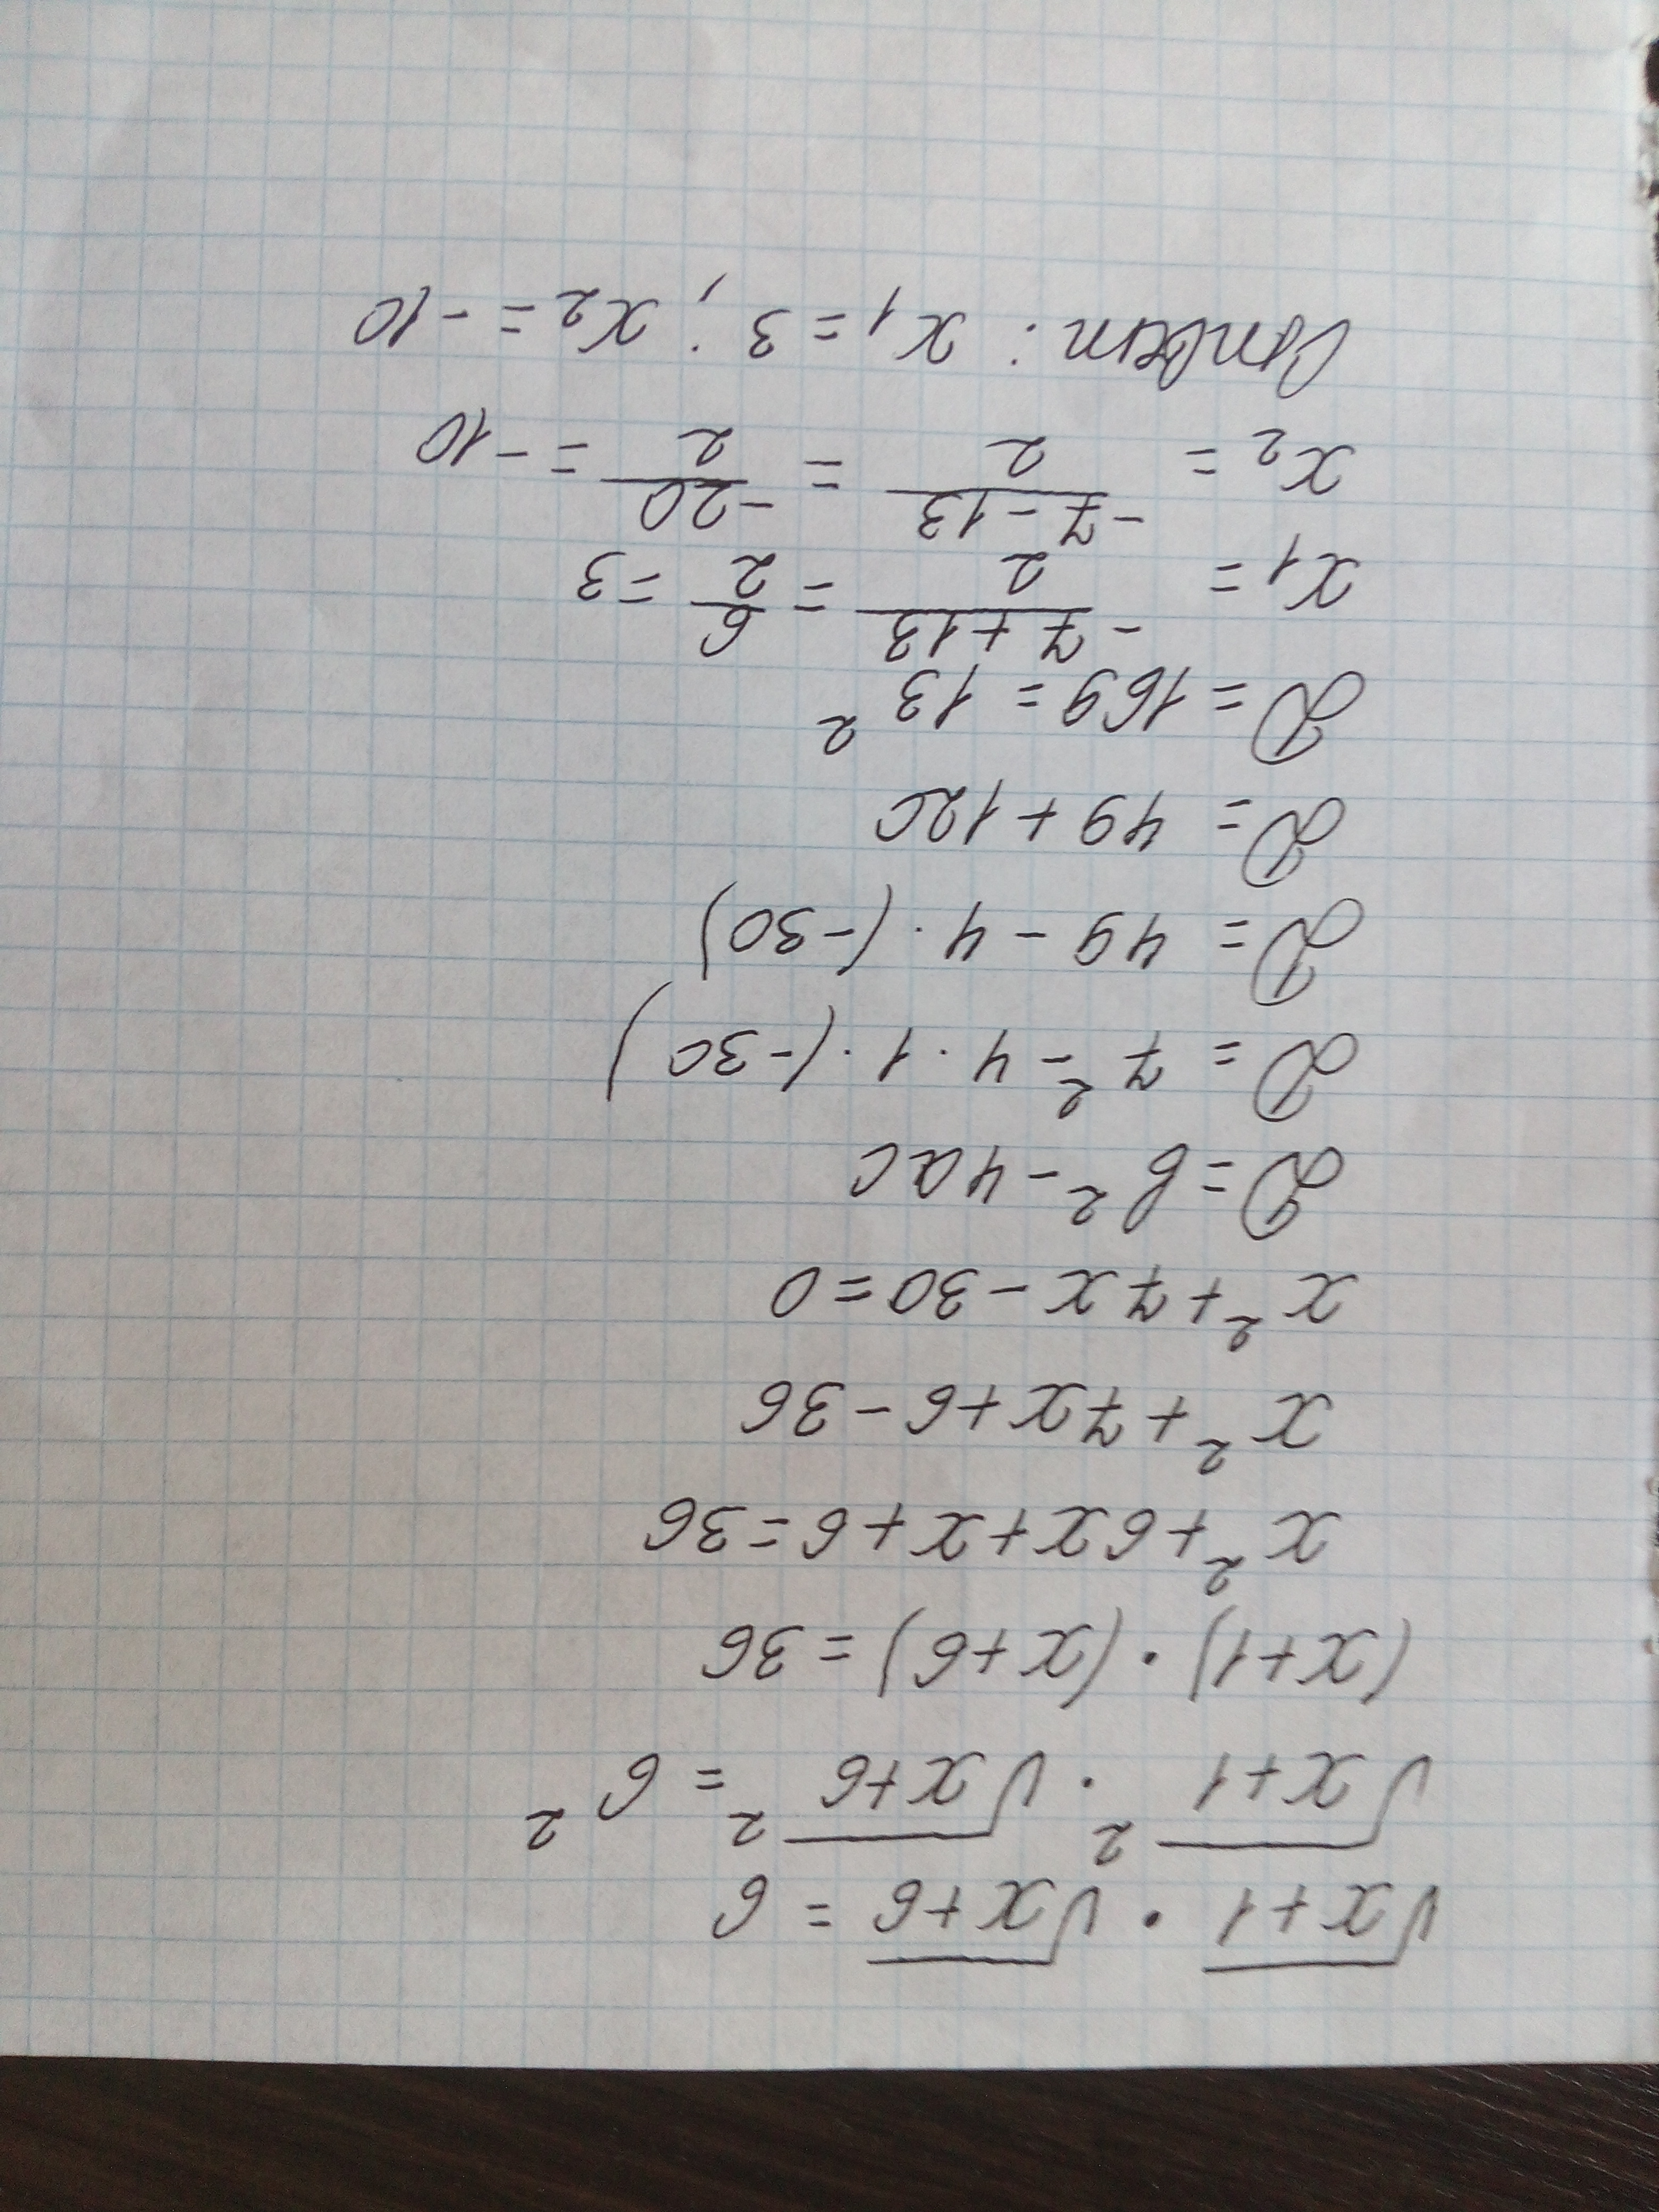 √x+1 · √x+6 = 6
√x+1² · √x+6² = 6²
(x+1) · (x+6) = 36
x²+6x+x+6=36
x²+7x+6-36
x²+7x-30=0
D=b²-4ac
D=7²-4·1·(-30)
D=49-4·(-30)
D=49+120
D=169=13²
x₁ = (-7+13)/2 = 6/2 = 3
x₂ = (-7-13)/2 = -20/2 = -10
Ответ: x₁=3; x₂=-10